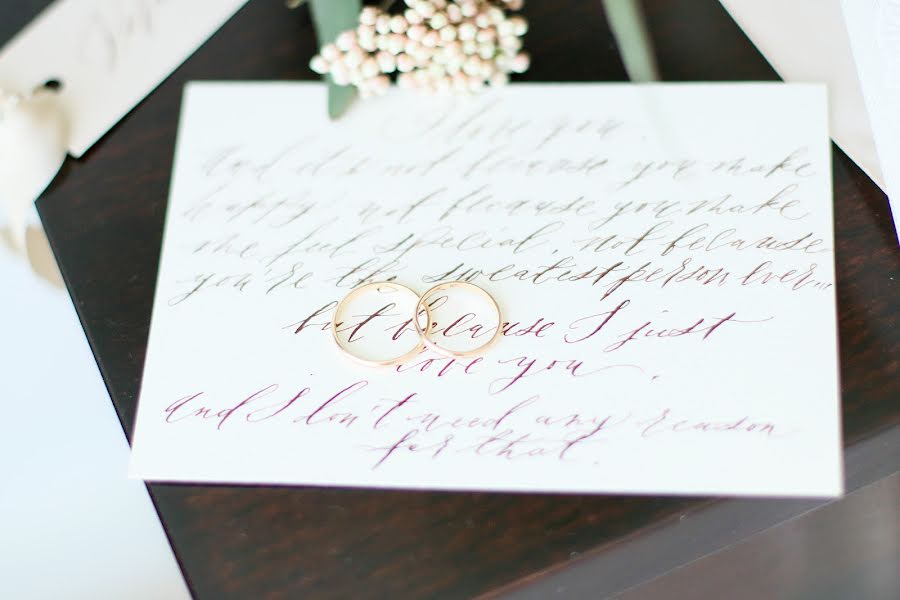 I love you.
And it's not because you make
happy, not because you make
me feel special, not because
you're the sweatest person Ever...
but because I just
love you.
And I don't need any reason
for that.